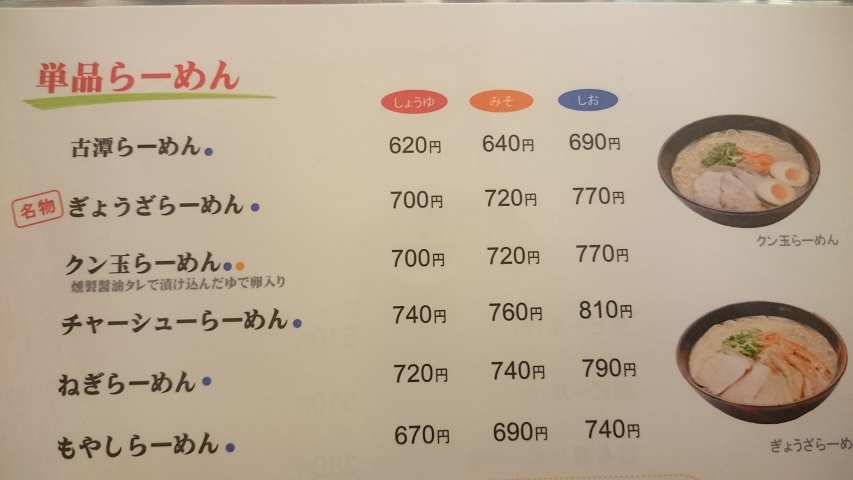 単品らーめん
しょうゆ みそ しお
古潭らーめん 620円 640円 690円
名物 ぎょうざらーめん 700円 720円 770円
クン玉らーめん 700円 720円 770円
燻製醤油タレで漬け込んだゆで卵入り
チャーシューらーめん 740円 760円 810円
ねぎらーめん 720円 740円 790円
もやしらーめん 670円 690円 740円
クン玉らーめん
ぎょうざらーめ